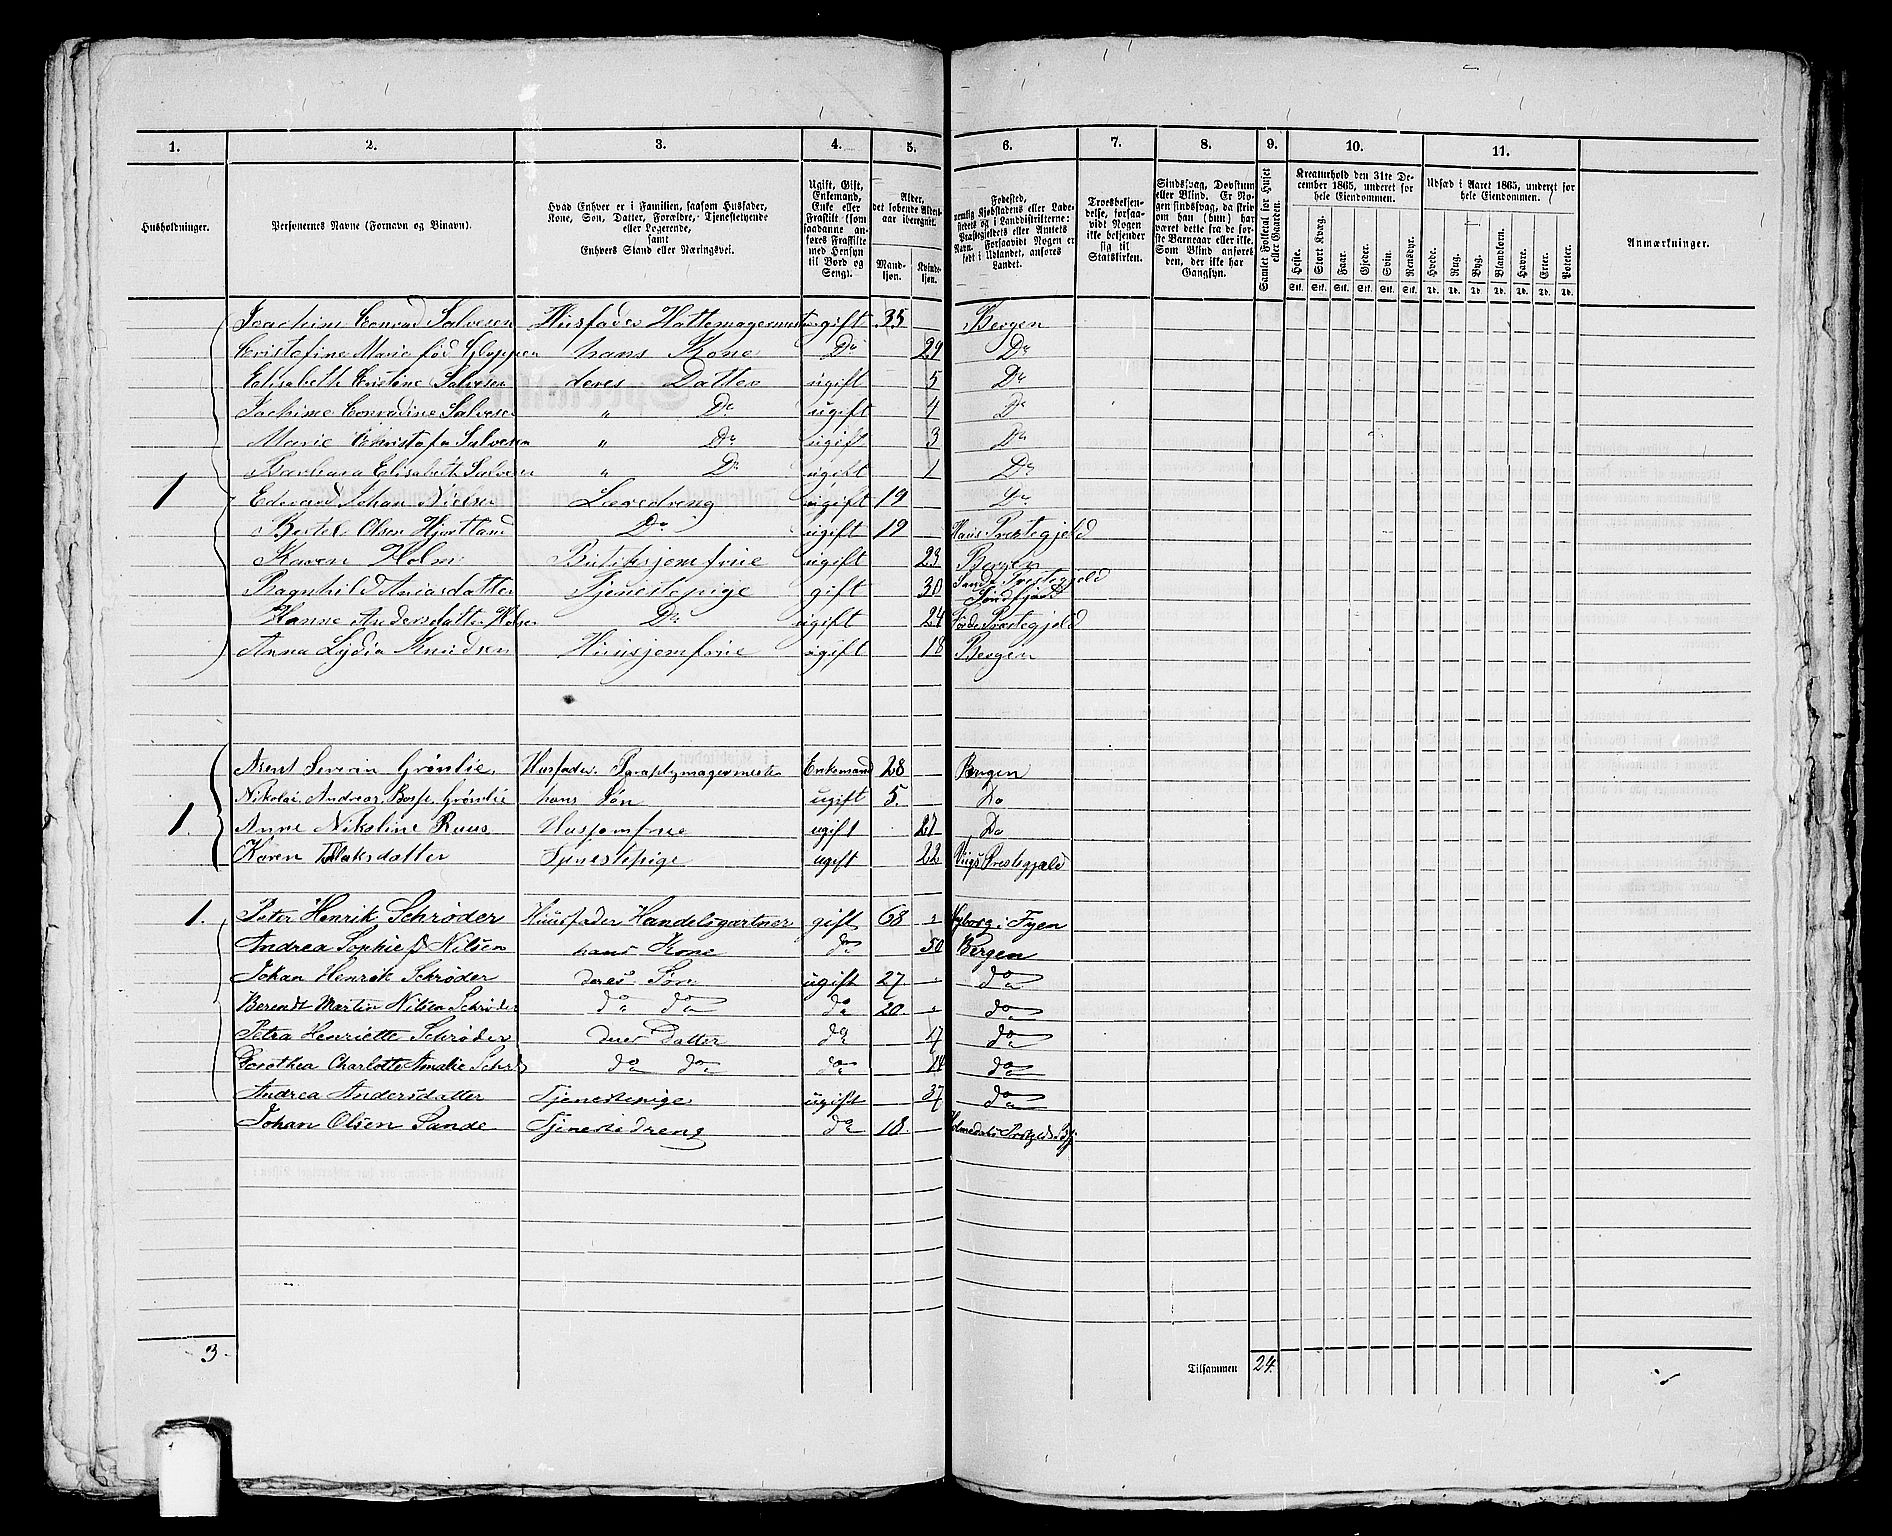 1. 2. 3. 4. 5. 6. 7. 8. 9. 10. 11.
Husholdninger.
Personernes Navne (Fornavn og Binavn).
Hvad Enhver er i Familien, saasom Husfader, Kone, Søn, Datter, Forældre, Tjenestetyende eller Logerende, samt Enhvers Stand eller Næringsvei.
Ugift, Gift, Enkemand, Enke eller Fraskilt (som saadanne anføres Fraskilte med Hensyn til Bord og Seng).
Alder, det løbende Aldersaar iberegnet.
Mandkjøn. Kvindekjøn.
Fødested, nemlig Kjøbstadens eller Ladestedets og i Landdistrikterne: Præstegjeldets eller Amtets Navn. Forsaavidt Nogen er født i Udlandet, anføres Landet.
Troesbekjendelse, forsaavidt Nogen ikke bekjender sig til Statskirken.
Sindssvag, Døvstum eller Blind. Er Nogen sindssvag, da skrives om han (hun) har været dette fra de første Barneaar eller ikke. Som Blind anføres den, der ikke har Gangsyn.
Samlet Folketal for Huset eller Gaarden.
Kreaturhold den 31te December 1865, underet for hele Eiendommen.
Heste. Stort Kvæg. Faar. Gjeder. Svin. Rensdyr.
Stk. Stk. Stk. Stk. Stk. Stk.
Udsæd i Aaret 1865, underet for hele Eiendommen.
Hvede. Rug. Byg. Blandkorn. Havre. Erter. Poteter.
Td. Td. Td. Td. Td. Td. Td.
Anmærkninger.
Joachim Conrad Salvesen Husfader Hattemagermester gift 35 Bergen
Cristofine Marie fød Gloppen hans Kone Do 29 Do
Elisabeth Cristine Salvesen deres Datter ugift 5 Do
Jachime Conradine Salvesen " Do ugift 4 Do
Marie Christofa Salvesen " Do ugift 3 Do
Barbara Elisabeth Salvesen " Do ugift 1 Do
1 Edevard Johan Nielsen Læredreng ugift 19 Do
Bertel Olsen Hjortland Do ugift 19 Haus Prestegjeld
Karen Holm Butiksjomfrue ugift 23 Bergen
Ragnhild Aniasdatter Tjenestepige gift 30 Prestegjeld Søndfjord
Hanne Andersdatter Do ugift 24 Førde Prestegjeld
Anna Lydia Knudsen Huusjomfrue ugift 18 Bergen
Arent Severin Grønlie Husfader. Paraplymagermester Enkemand 28 Bergen
Nikolai Andreas Grønlie hans Søn ugift 5. Do
1. Anne Nikoline Ruus Husjomfrue ugift 27 Do
Karen Tollaksdatter Tjenestepige ugift 22 Viigs Prestegjæld
1. Peter Henrik Schrøder Huusfader Handelsgartner gift 68 Nyborg i Fyen
Andrea Sophie f Nilsen hans Kone do 50 Bergen
Johan Henrik Schrøder deres Søn ugift 27. do
Berendt Martin Nilsen Schrøder do do do 20. do
Petra Henriette Schrøder deres Datter do 17 do
Dorothea Charlotte Amalie Schrd do do do 14 do
Andrea Andersdatter Tjenestepige ugift 37 do
Johan Olsen Sande Tjenestedreng do 18.
3. Tilsammen 24.